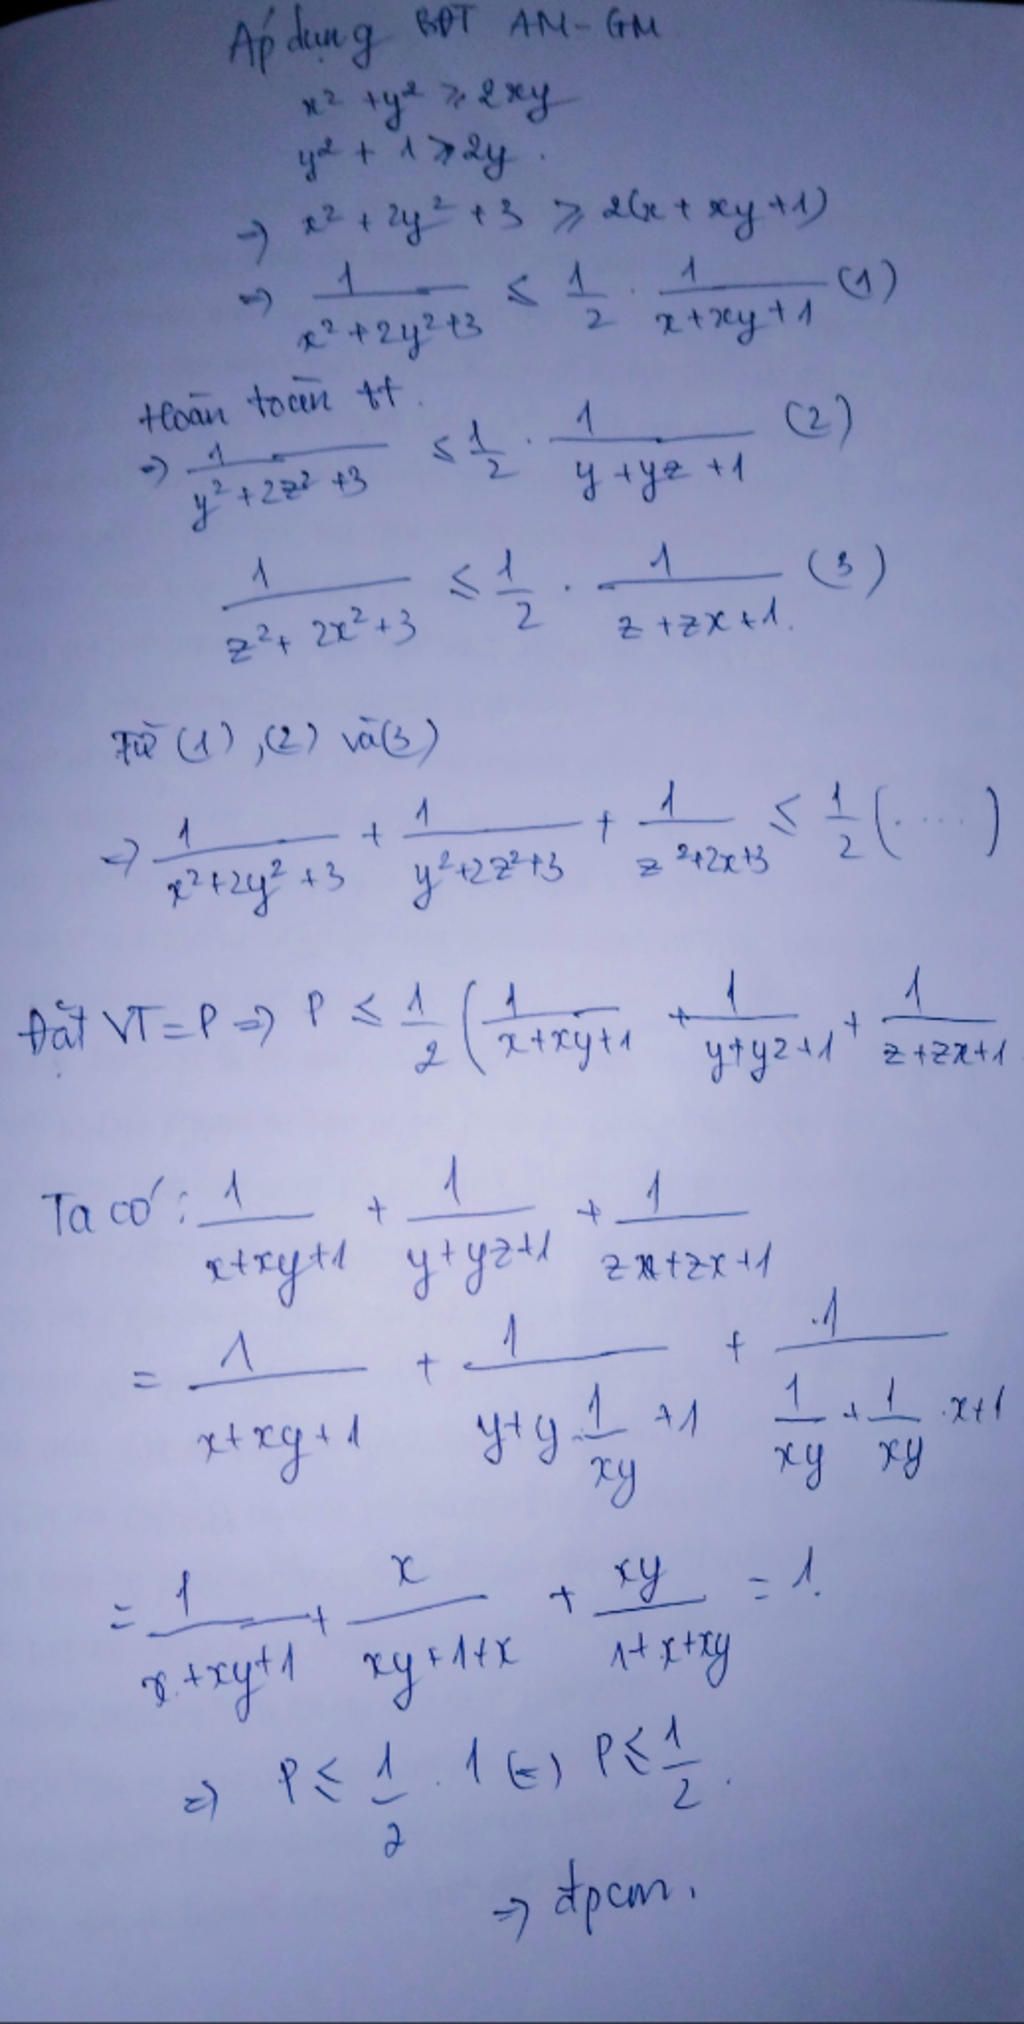 Áp dụng BĐT AM-GM
x² + y² ⩾ 2xy
y² + 1 ⩾ 2y.
⇒ x² + 2y² + 3 ⩾ 2(x + xy + 1)
⇒ 1/(x²+2y²+3) ≤ 1/2 · 1/(x+xy+1) (1)
Hoàn toàn tt.
⇒ 1/(y²+2z²+3) ≤ 1/2 · 1/(y+yz+1) (2)
1/(z²+2x²+3) ≤ 1/2 · 1/(z+zx+1). (3)
Từ (1), (2) và (3)
⇒ 1/(x²+2y²+3) + 1/(y²+2z²+3) + 1/(z²+2x+3) ≤ 1/2 (.....)
Đặt VT = P ⇒ P ≤ 1/2 (1/(x+xy+1) + 1/(y+yz+1) + 1/(z+zx+1)
Ta có: 1/(x+xy+1) + 1/(y+yz+1) + 1/(zx+zx+1)
= 1/(x+xy+1) + 1/(y+y·1/xy+1) + 1/(1/xy+1/xy·x+1)
= 1/(x+xy+1) + x/(xy+1+x) + xy/(1+x+xy) = 1.
⇒ P ≤ 1/2 · 1 (=) P ≤ 1/2.
⇒ đpcm.